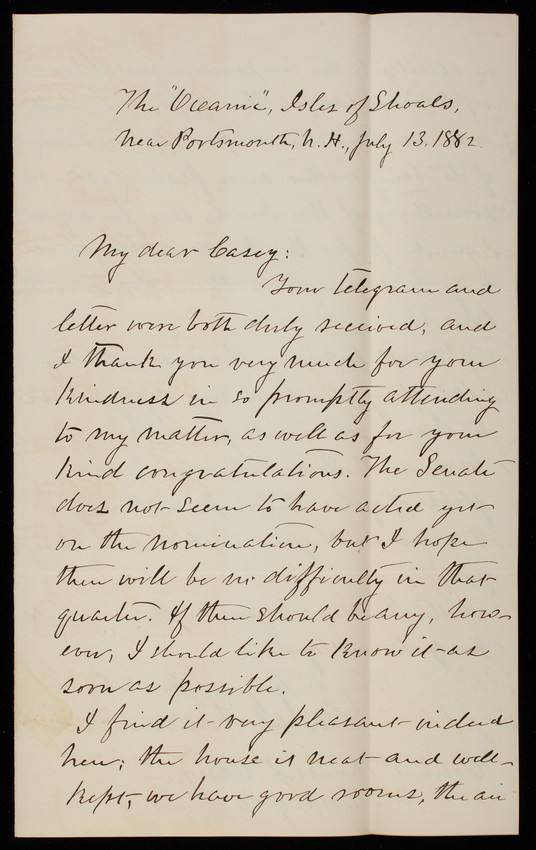 The "Oceanic", Isles of Shoals,
Near Portsmouth, N. H., July 13. 1882
My dear Casey:
Your telegram and
letter were both duly received, and
I thank you very much for your
kindness in so promptly attending
to my matter, as well as for your
kind congratulations. The Senate
does not seem to have acted yet
on the nomination, but I hope
there will be no difficulty in that
quarter. If there should be any, how-
ever, I should like to know it as
soon as possible.
I find it very pleasant indeed
here; the house is neat and well-
kept, we have good rooms, the air